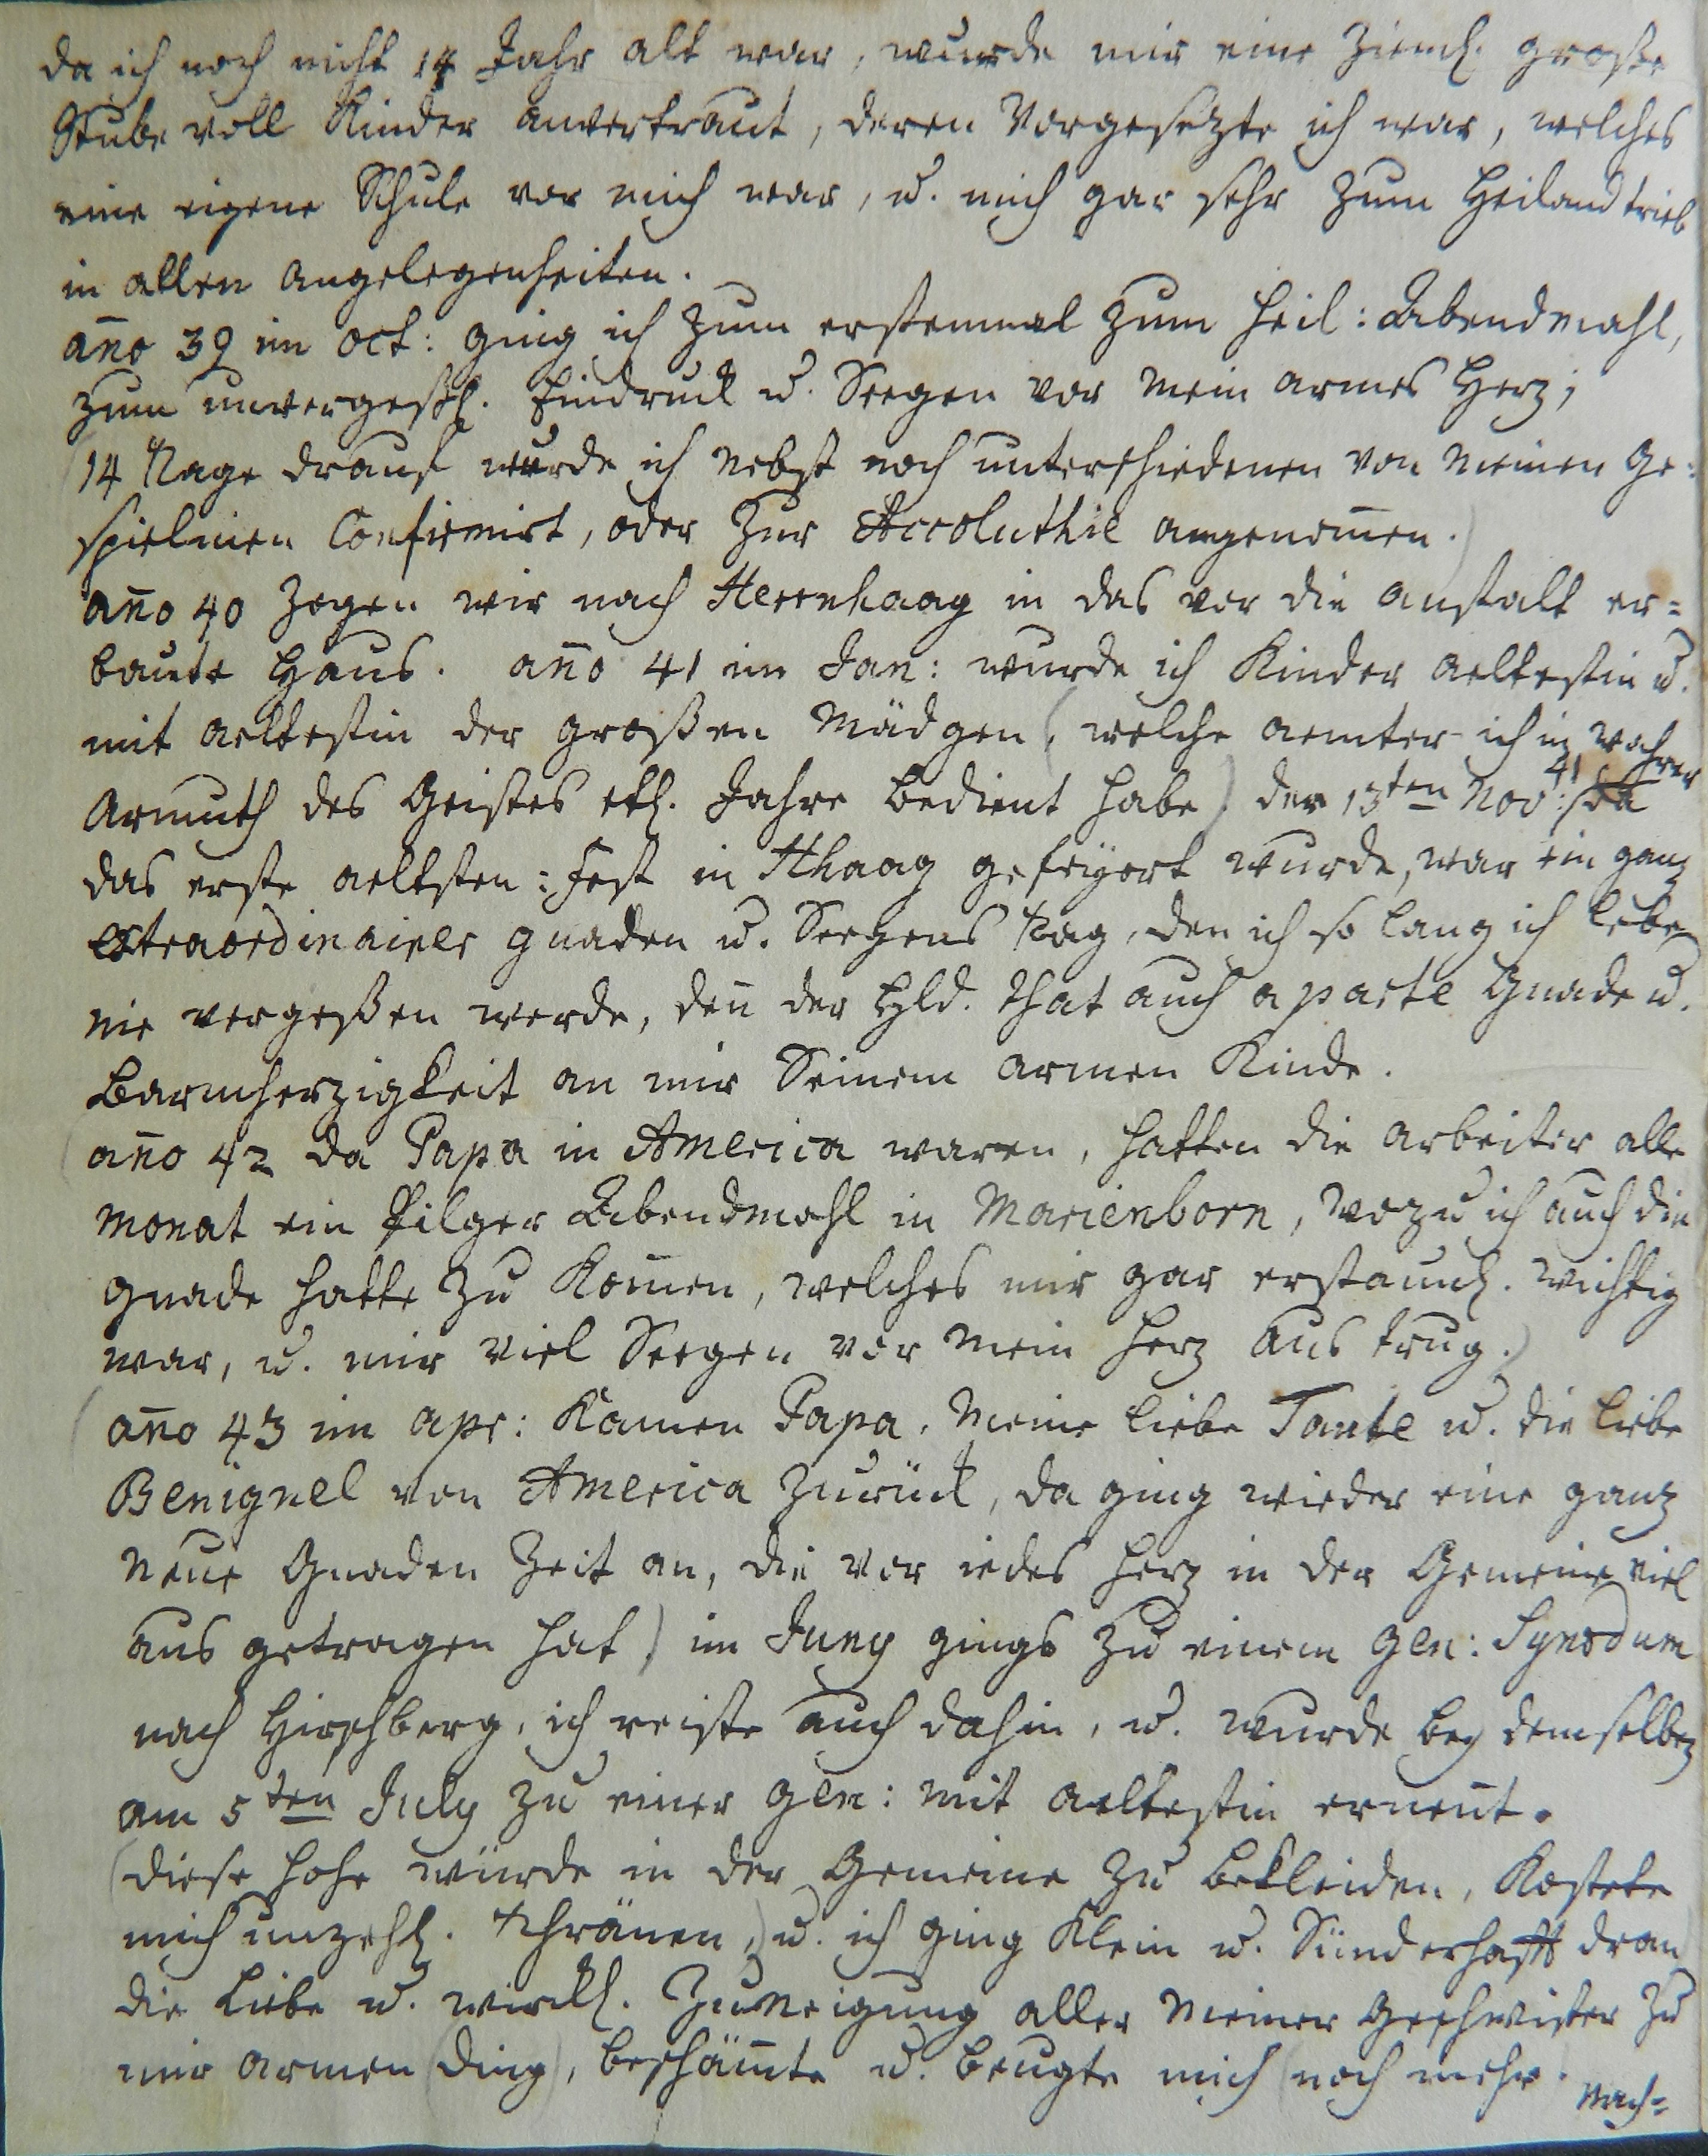 da ich noch nicht 14 Jahr alt war, wurde mir eine Zieml. große
Stube voll Kinder anvertraut, deren Vorgesezte ich war, welches
eine eigene Schule vor mich war, u. mich gar sehr zum Heiland trieb
in allen angelegenheiten.
año 39 im Oct: ging ich zum erstenmal zum heil: Abendmahl,
zum unvergeßl. Eindruck u. Seegen vor mein armes Herz;
(14 Tage drauf wurde ich nebst noch unterschiedenen von meinen Ge=
spielinen Confirmirt, oder zur Accoluthie angenom̄en.)
año 40 zogen wir nach Herrnhaag in das vor die anstalt er=
baute Haus. año 41 im Jan: wurde ich Kinder aeltestin u.
mit aeltestin der großen Mädgen (welche aemter ich in wahrer
Armuth des Geistes etl. Jahre bedient habe) den 13ten Nov: 41 da
das erste aeltsten: Fest in Hhaag gefeyert wurde, war ein ganz
extraordinairer gnaden u. Seegens tag, den ich so lang ich lebe
nie vergeßen werde, den̄ der Hld. that auch aparte Gnade u.
Barmherzigkeit an mir Seinem armen Kinde.
(año 42 da Papa in America waren, hatten die arbeiter alle
monat ein Pilger Abendmahl in Marienborn, wozu ich auch die
gnade hatte zu kom̄en, welches mir gar erstaunl. wichtig
war, u. mir viel Seegen vor mein Herz aus trug.)
(año 43 im apr: kamen Papa, meine liebe Tante u. die liebe
Benignel von America zurück, da ging wieder eine ganz
neue Gnaden Zeit an, die vor iedes Herz in der Gemeine viel
aus getragen hat) im Juny gings zu einem Gen: Synodum
nach Hirschberg, ich reiste auch dahin, u. wurde bey demselben
am 5ten July zu einer Gen: mit aeltestin ernent.
(diese hohe würde in der Gemeine zu bekleiden, kostete
mich unzehl. thränen,) u. ich ging klein u. Sünderhafft dran
die Liebe u. wirckl. Zuneigung aller meiner Geschwister zu
mir armen (Ding), beschäm̄te u. beugte mich (noch mehr.
Nach=